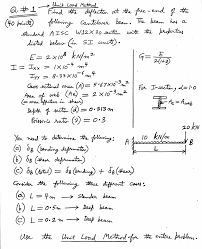 Q #1 - Unit Load Method
(40 points) Find the deflection at the free-end of the
following Cantilever beam. The beam has a
standard AISC W12X30 section with the properties
listed below (in SI units).
E = 2×10⁸ kN/m²
I = Ixx = 1×10⁻⁴ m⁴
Iyy = 8.57×10⁻⁶ m⁴
Cross sectional area (A) = 5.67×10⁻³ m²
Area of web (Aw) = 2×10⁻³ m²
(= area effective in shear)
Depth of section (d) = 0.313 m
Poisson's Ratio (ν) = 0.3
G = E / 2(1+ν)
For I-section, α=1.0
20 kN
10 kN/m
A
B
L
You need to determine the following:
(a) δB (bending deformation)
(b) δB (shear deformation)
(c) δB (total) = δB (bending) + δB (shear)
Consider the following three different cases:
(a) L = 4m → Slender beam
(b) L = 0.5m → Deep beam
(c) L = 0.2m → Deep beam
Use the Unit Load Method for the entire problem.